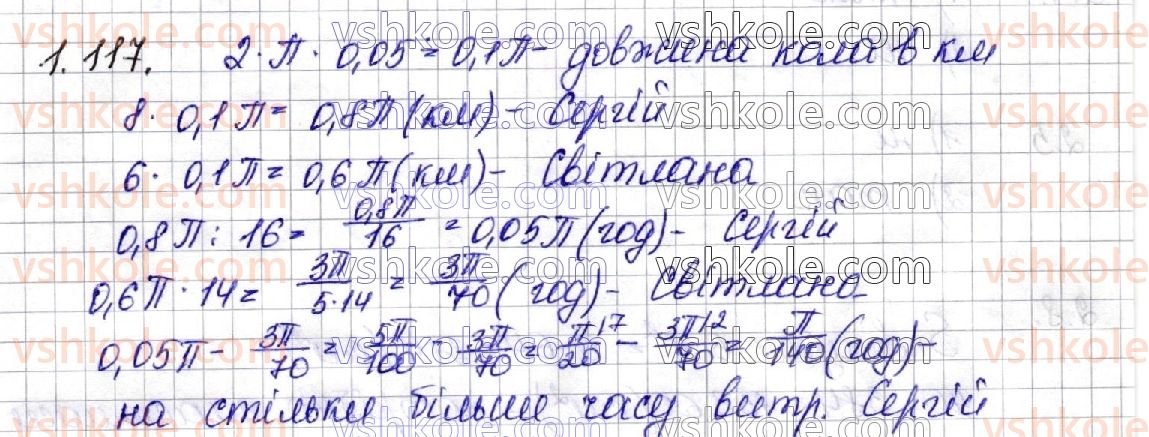 1.117. 2·π·0,05=0,1π- довжина кола в км
8·0,1π=0,8π(км)- Сергій
6·0,1π=0,6π(км)- Світлана
0,8π:16=0,8π/16=0,05π(год)- Сергій
0,6π·14=3π/5·14=3π/70(год)- Світлана
0,05π-3π/70=5π/100-3π/70=π|7/20-3π|2/70=π/140(год)-
на стільки більше часу витр. Сергій